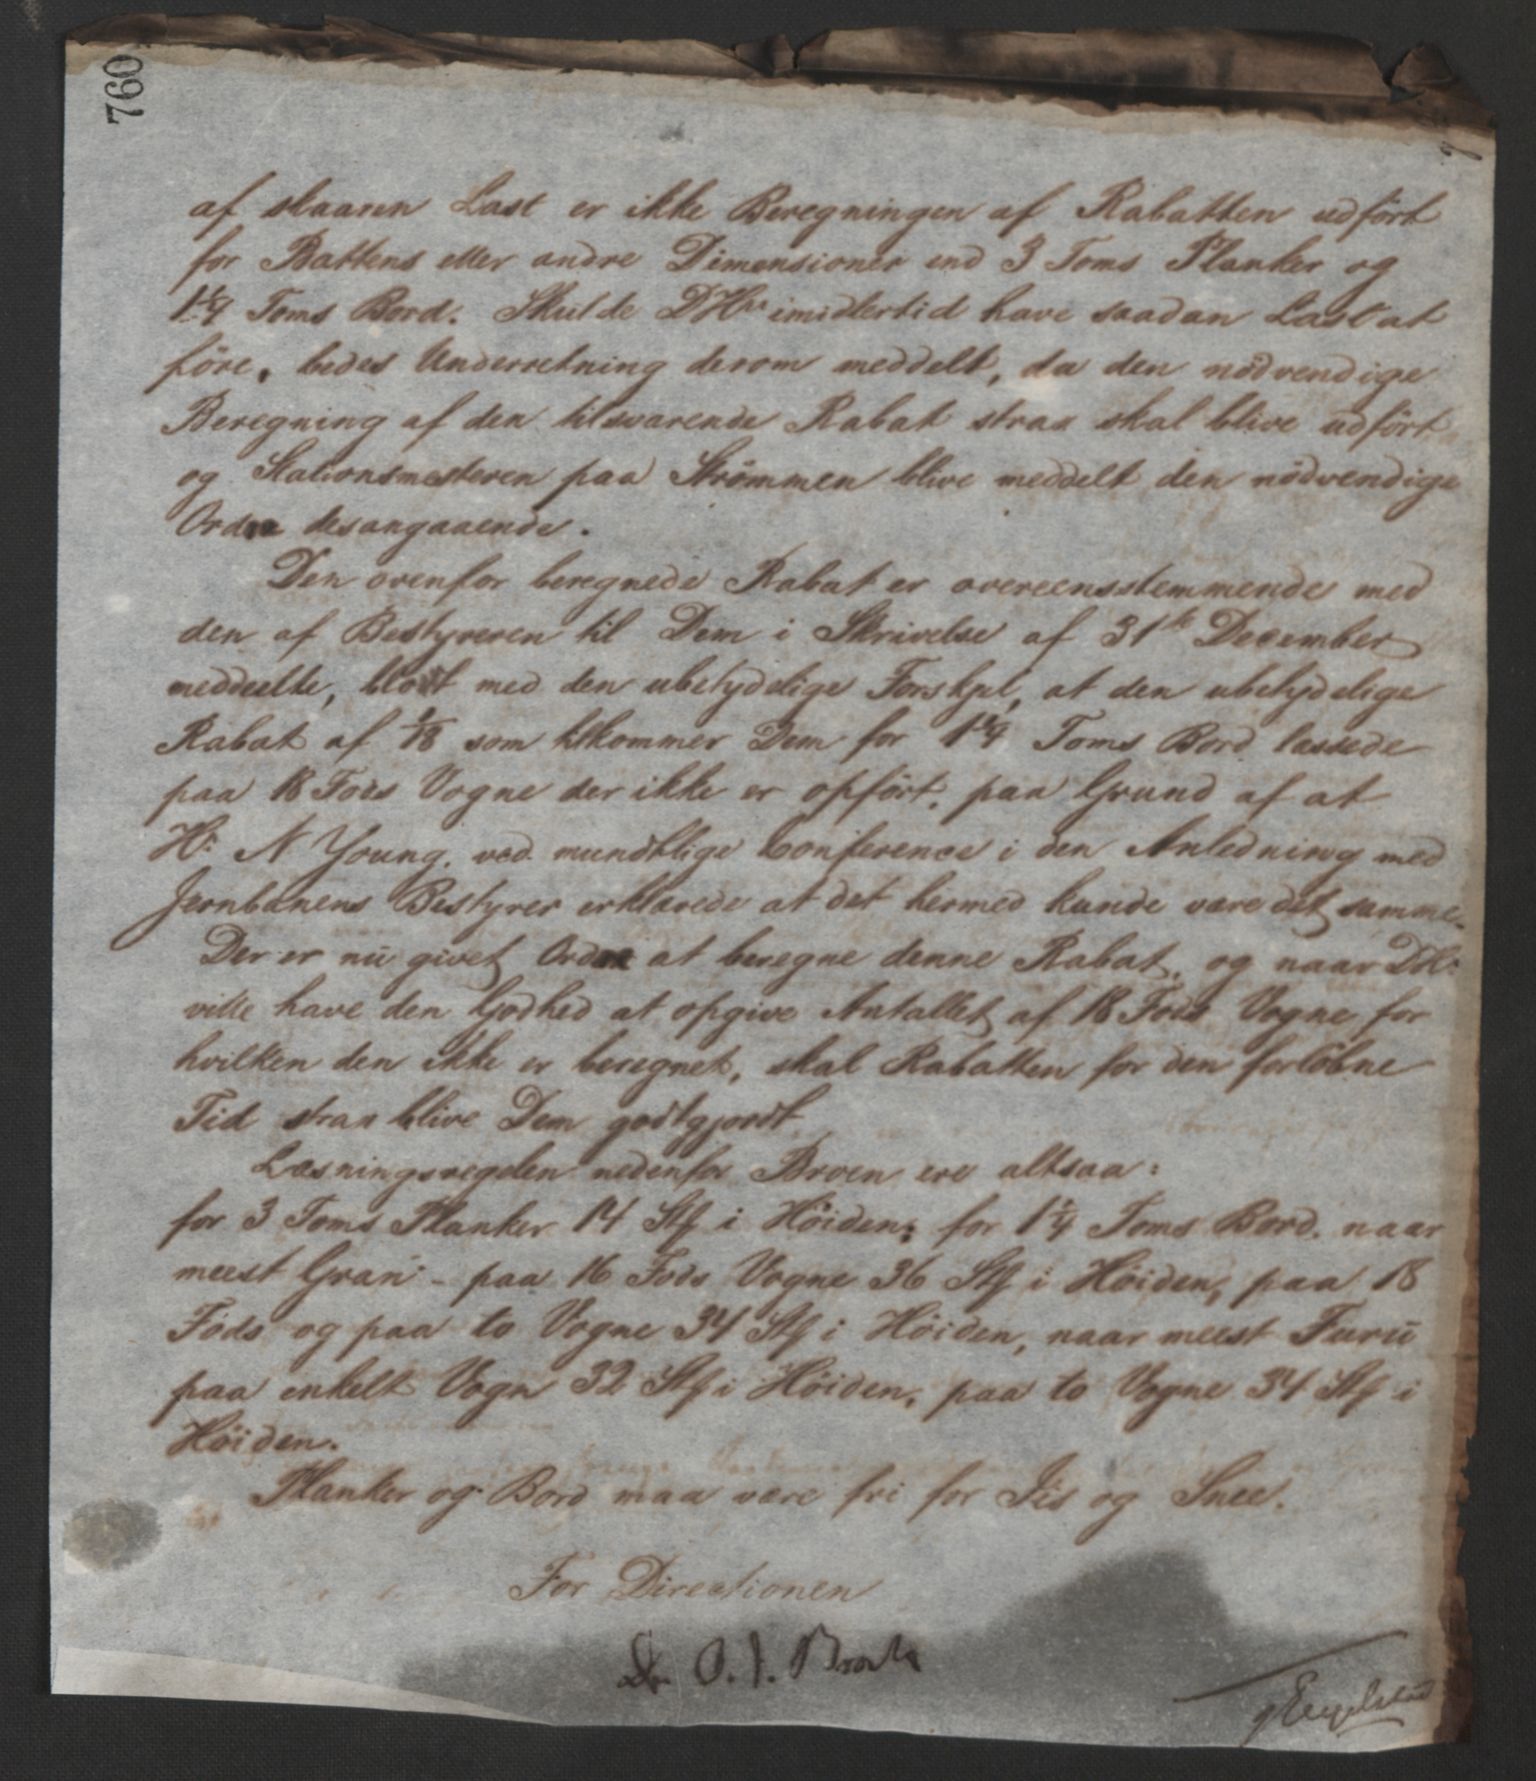 760
af skaaren Last er ikke Beregningen af Rabatten udført
for Battens eller andre Dimensioner end 3 Toms Planker og
1 1/4 Toms Bord. Skulde DHrr imidlertid have saadan Last at
före, bedes Underretning derom meddelt, da den nödvendige
Beregning af den tilsvarende Rabat strax skal blive udført
og Stationsmesteren paa Strömmen blive meddelt den nödvendige
Ordre desangaaende.
Den ovenfor beregnede Rabat er overeensstemmende med
den af Bestyreren til Dem i Skrivelse af 31te December
meddeelte, blodt med den ubetydelige Forskjel, at den ubetydelige
Rabat af 1/18 som tilkommer Dem for 1 1/4 Toms Bord læssede
paa 18 Fods Vogne der ikke er opført, paa Grund af at
Hr N Young, ved mundtlige Conference i den Anledning med
Jernbanens Bestyrer erklærede at det hermed kunde være det samme.
Der er nu givet Ordre at beregne denne Rabat, og naar DHr
ville have den Godhed at opgive Antallet af 18 Fods Vogne for
hvilken den ikke er beregnet, skal Rabatten for den forløbne
Tid strax blive Dem godtgjordt.
Læsningsregelen nedenfor Broen ere altsaa:
for 3 Toms Planker 14 Stk i Höiden; for 1 1/4 Toms Bord. naar
meest Gran - paa 16 Fods Vogne 36 Stk i Höiden, paa 18
Fods og paa to Vogne 34 Stk i Höiden, naar meest Furu
paa enkelt Vogn 32 Stk i Höiden, paa to Vogne 34 Stk i
Höiden.
Planker og Bord maa være fri for Iis og Snee.
For Directionen
Dr. O. J. Broch
/ Engelstad